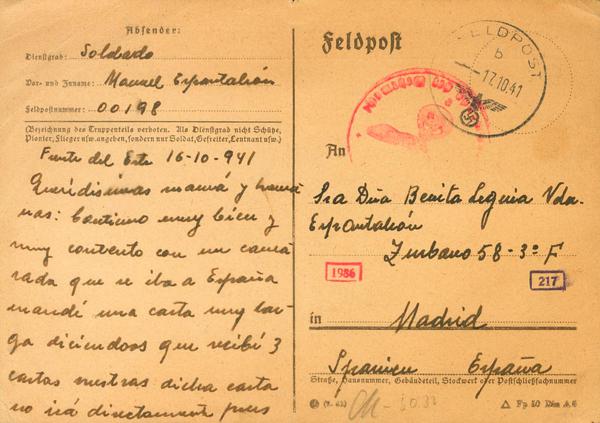 Absender:
Dienstgrad: Soldado
Vor- und Zuname: Manuel Espantaleón
Feldpostnummer: 00198
(Bezeichnung des Truppenteils verboten. Als Dienstgrad nicht Schütze,
Pionier, Flieger usw. angeben, sondern nur Soldat, Gefreiter, Leutnant usw.)
Frente del Este 16-10-941
Queridisimas mamá y herma
nas: Continuo muy bien y
muy contento con un cama
rada que se iba a España
mandé una carta muy lar
ga diciendoos que recibí 3
cartas vuestras dicha carta
no irá directamente pues
Feldpost
FELDPOST
b
17.10.41
An
Sra Dña Benita Leguia Vda.
Espantaleón
Zurbano 58-3º F
1986
217
in
Madrid
Spanien España
Straße, Hausnummer, Gebäudeteil, Stockwerk oder Postschließfachnummer